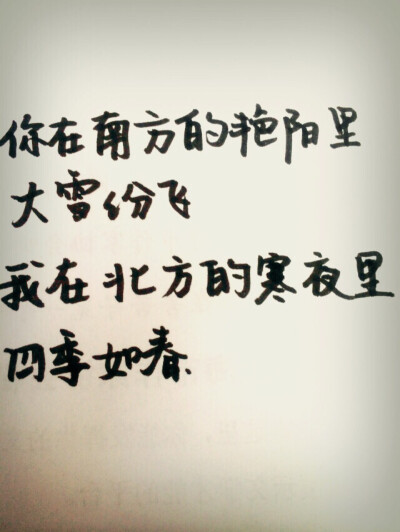 你在南方的艳阳里
大雪纷飞
我在北方的寒夜里
四季如春.